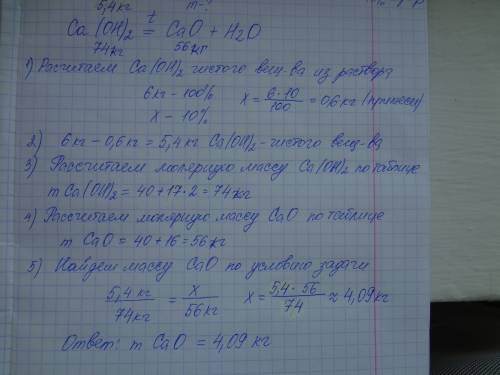 5,4кг m-?
Ca(OH)₂ =ᵗ CaO + H₂O
74кг 56кг
1) Расчитаем Ca(OH)₂ чистого вещ-ва из раствора
6кг – 100% x = 6·10/100 = 0,6 кг (примеси)
x – 10%
2) 6кг – 0,6кг = 5,4кг Ca(OH)₂ - чистого вещ-ва
3) Рассчитаем молярную массу Ca(OH)₂ по таблице
m Ca(OH)₂ = 40 + 17·2 = 74кг
4) Рассчитаем молярную массу CaO по таблице
m CaO = 40 + 16 = 56кг
5) Найдем массу CaO по условию задачи
5,4 кг/74кг = x/56кг x = 5,4·56/74 ≈ 4,09кг
Ответ: m CaO = 4,09 кг